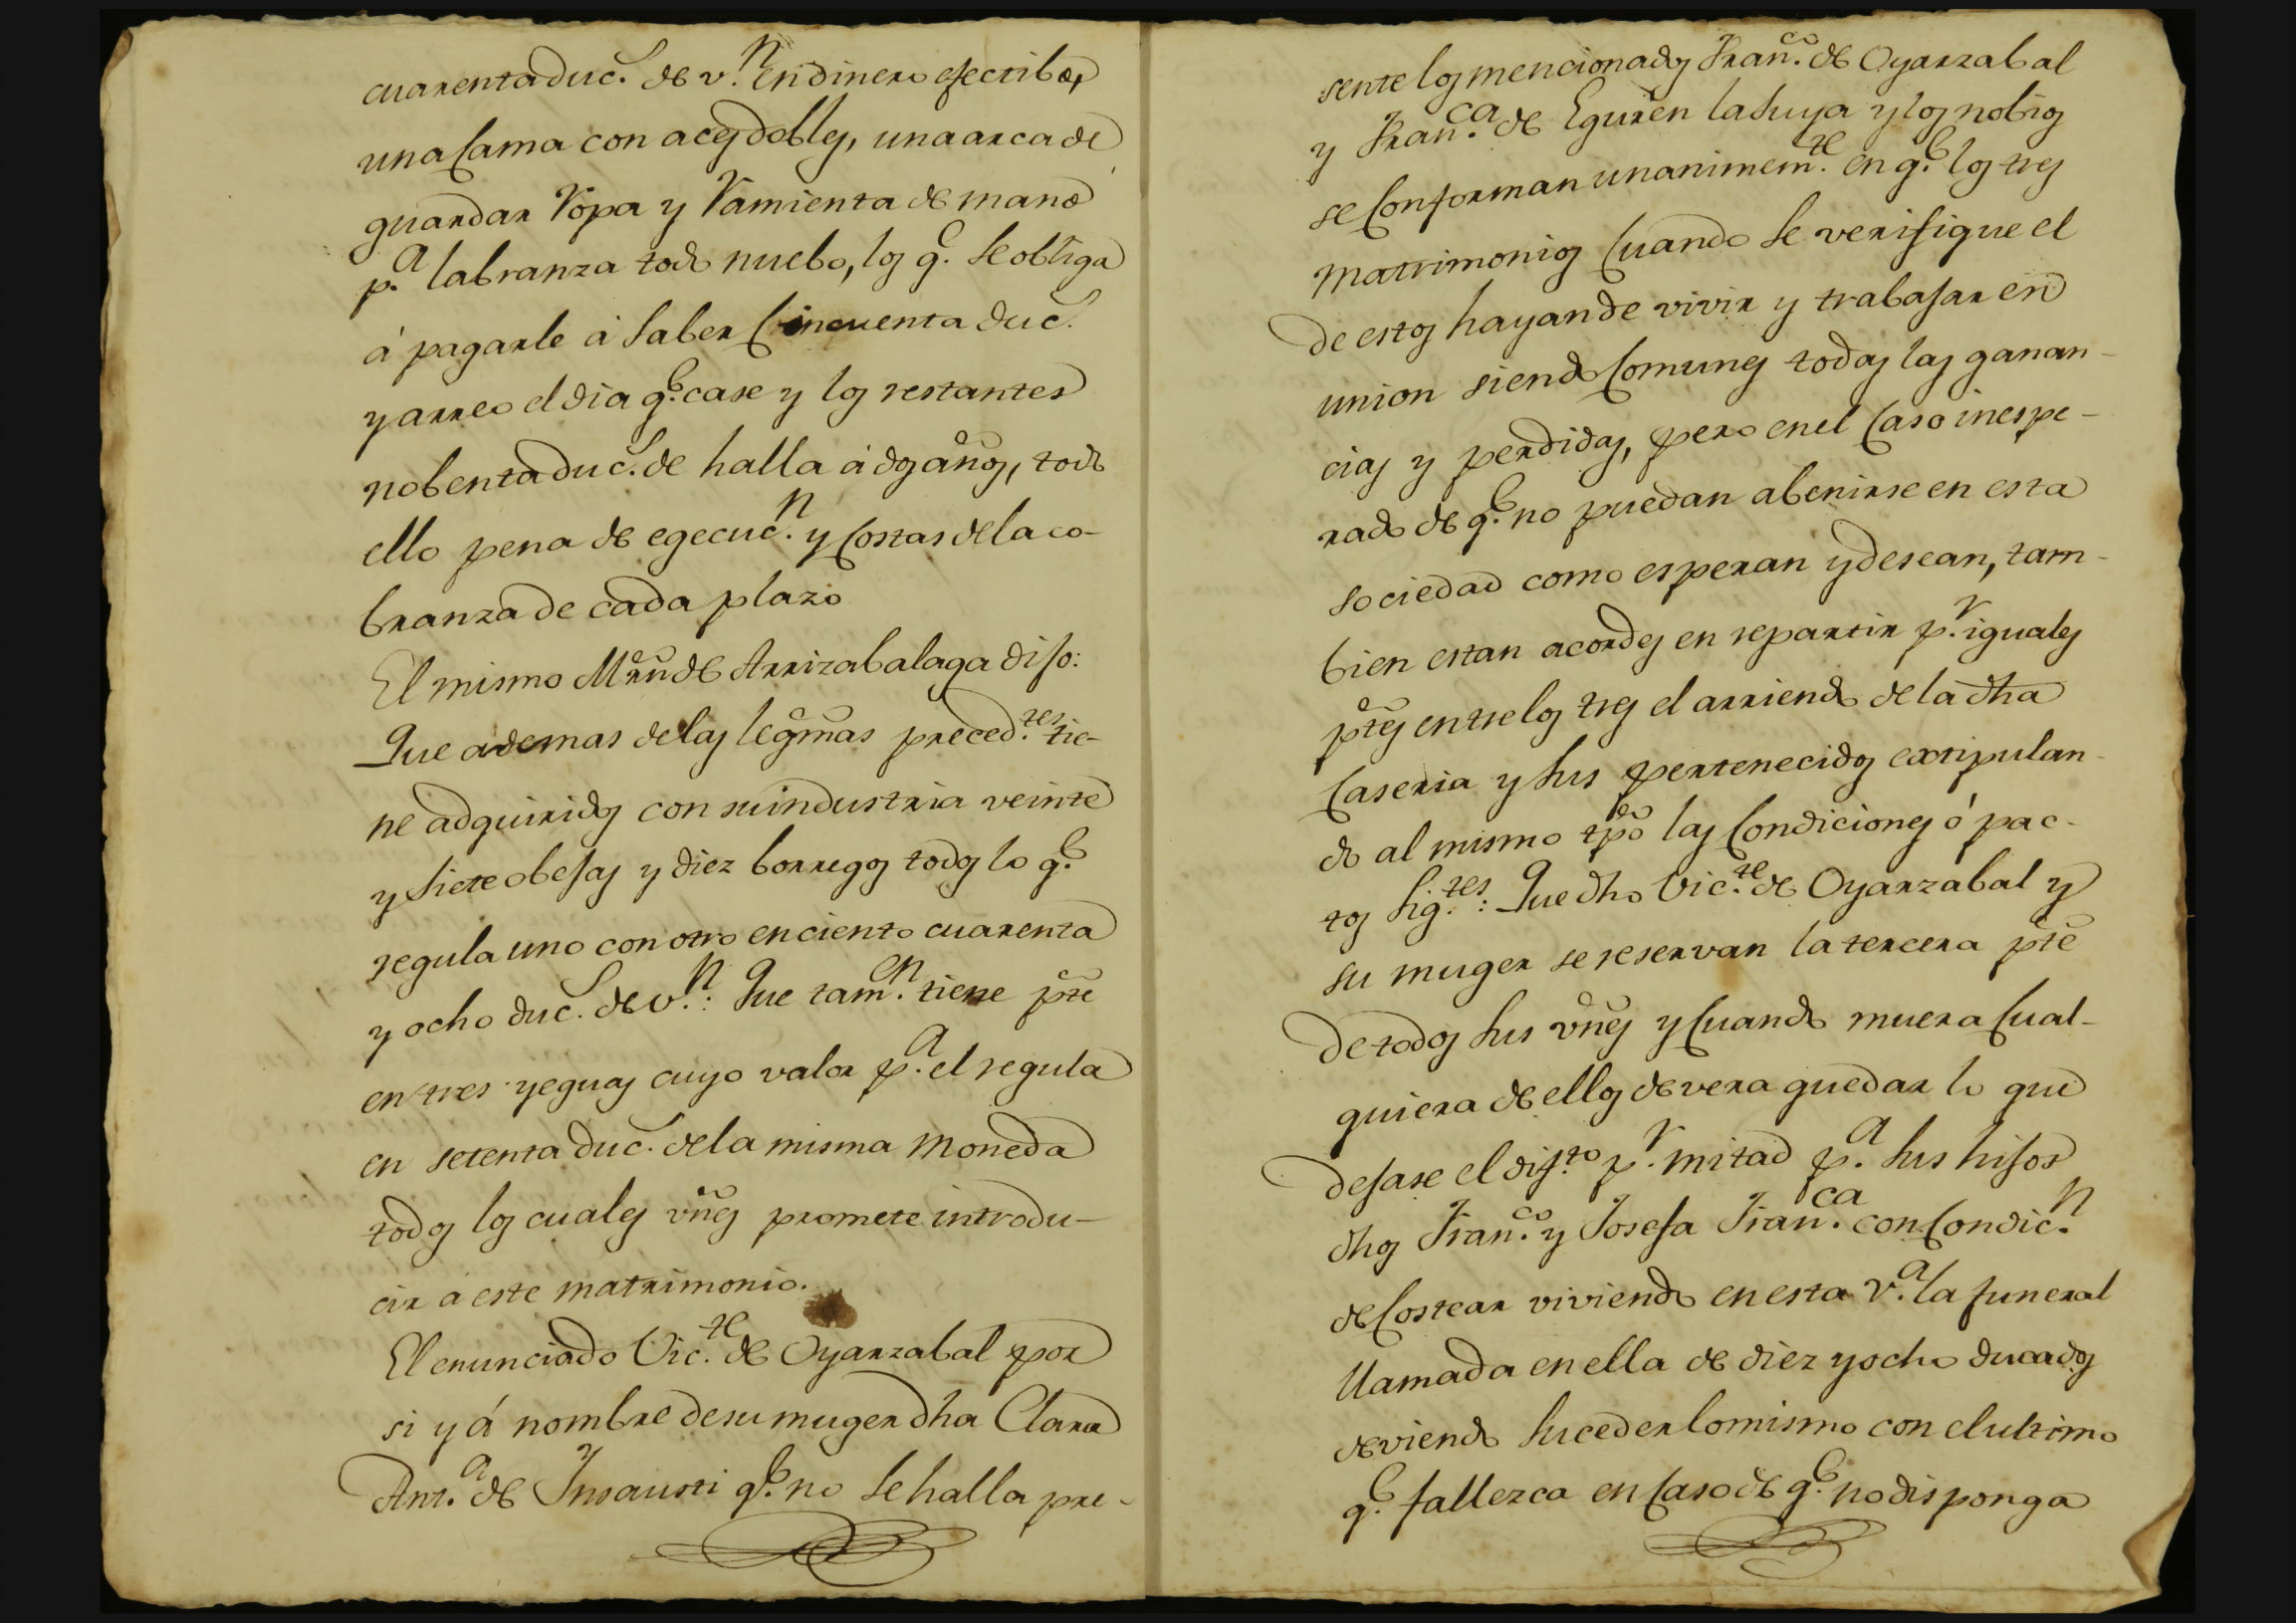 cuarenta duc.s de v.n en dinero efectibo,
una Cama con aces dobles, una arca de
guardar Ropa y Ramienta de mano
p.a labranza todo nuebo, los q.e se obliga
á pagarle á saber Cincuenta duc.s
y arreo el dia q.e case y los restantes
nobenta duc.s de halla á dos años, todo
ello pena de egecuc.n y Costas de la co-
branza de cada plazo
El mismo Mrñ de Arrizabalaga dijo:
Que ademas de las legmas preced.tes tie-
ne adquiridos con su industria veinte
y siete obejas y diez borregos todos lo q.e
regula uno con otro en ciento cuarenta
y ocho duc.s de v.n: Que tam.en tiene pte
en tres yeguas cuyo valor p.a el regula
en setenta duc.s de la misma moneda
todos los cuales vñes promete introdu-
cir á este matrimonio.
El enunciado Vic.te de Oyarzabal por
si y á nombre de su muger dha Clara
Ant.a de Insausti q.e no se halla pre-
sente los mencionados Fran.co de Oyarzabal
y Fran.ca de Eguren la suya y los nobios
se Conforman unanimem.te en q.e los tres
matrimonios Cuando se verifique el
de estos hayan de vivir y trabajar en
union siendo Comunes todas las ganan-
cias y perdidas, pero en el Caso inespe-
rado de q.e no puedan abenirse en esta
sociedad como esperan y desean, tam-
bien estan acordes en repartir p.r iguales
ptes entre los tres el arriendo de la dha
Caseria y sus pertenecidos extipulan-
do al mismo tpo las Condiciones ó pac-
tos sig.tes: Que dho Vic.te de Oyarzabal y
su muger se reservan la tercera pte
de todos sus vñes y Cuando muera Cual-
quiera de ellos devera quedar lo que
dejase el dif.to p.r mitad p.a sus hijos
dhos Fran.co y Josefa Fran.ca con Condic.n
de Costear viviendo en esta v.a la funeral
llamada en ella de diez y ocho ducados
deviendo suceder lo mismo con el ultimo
q.e fallezca en Caso de q.e no disponga